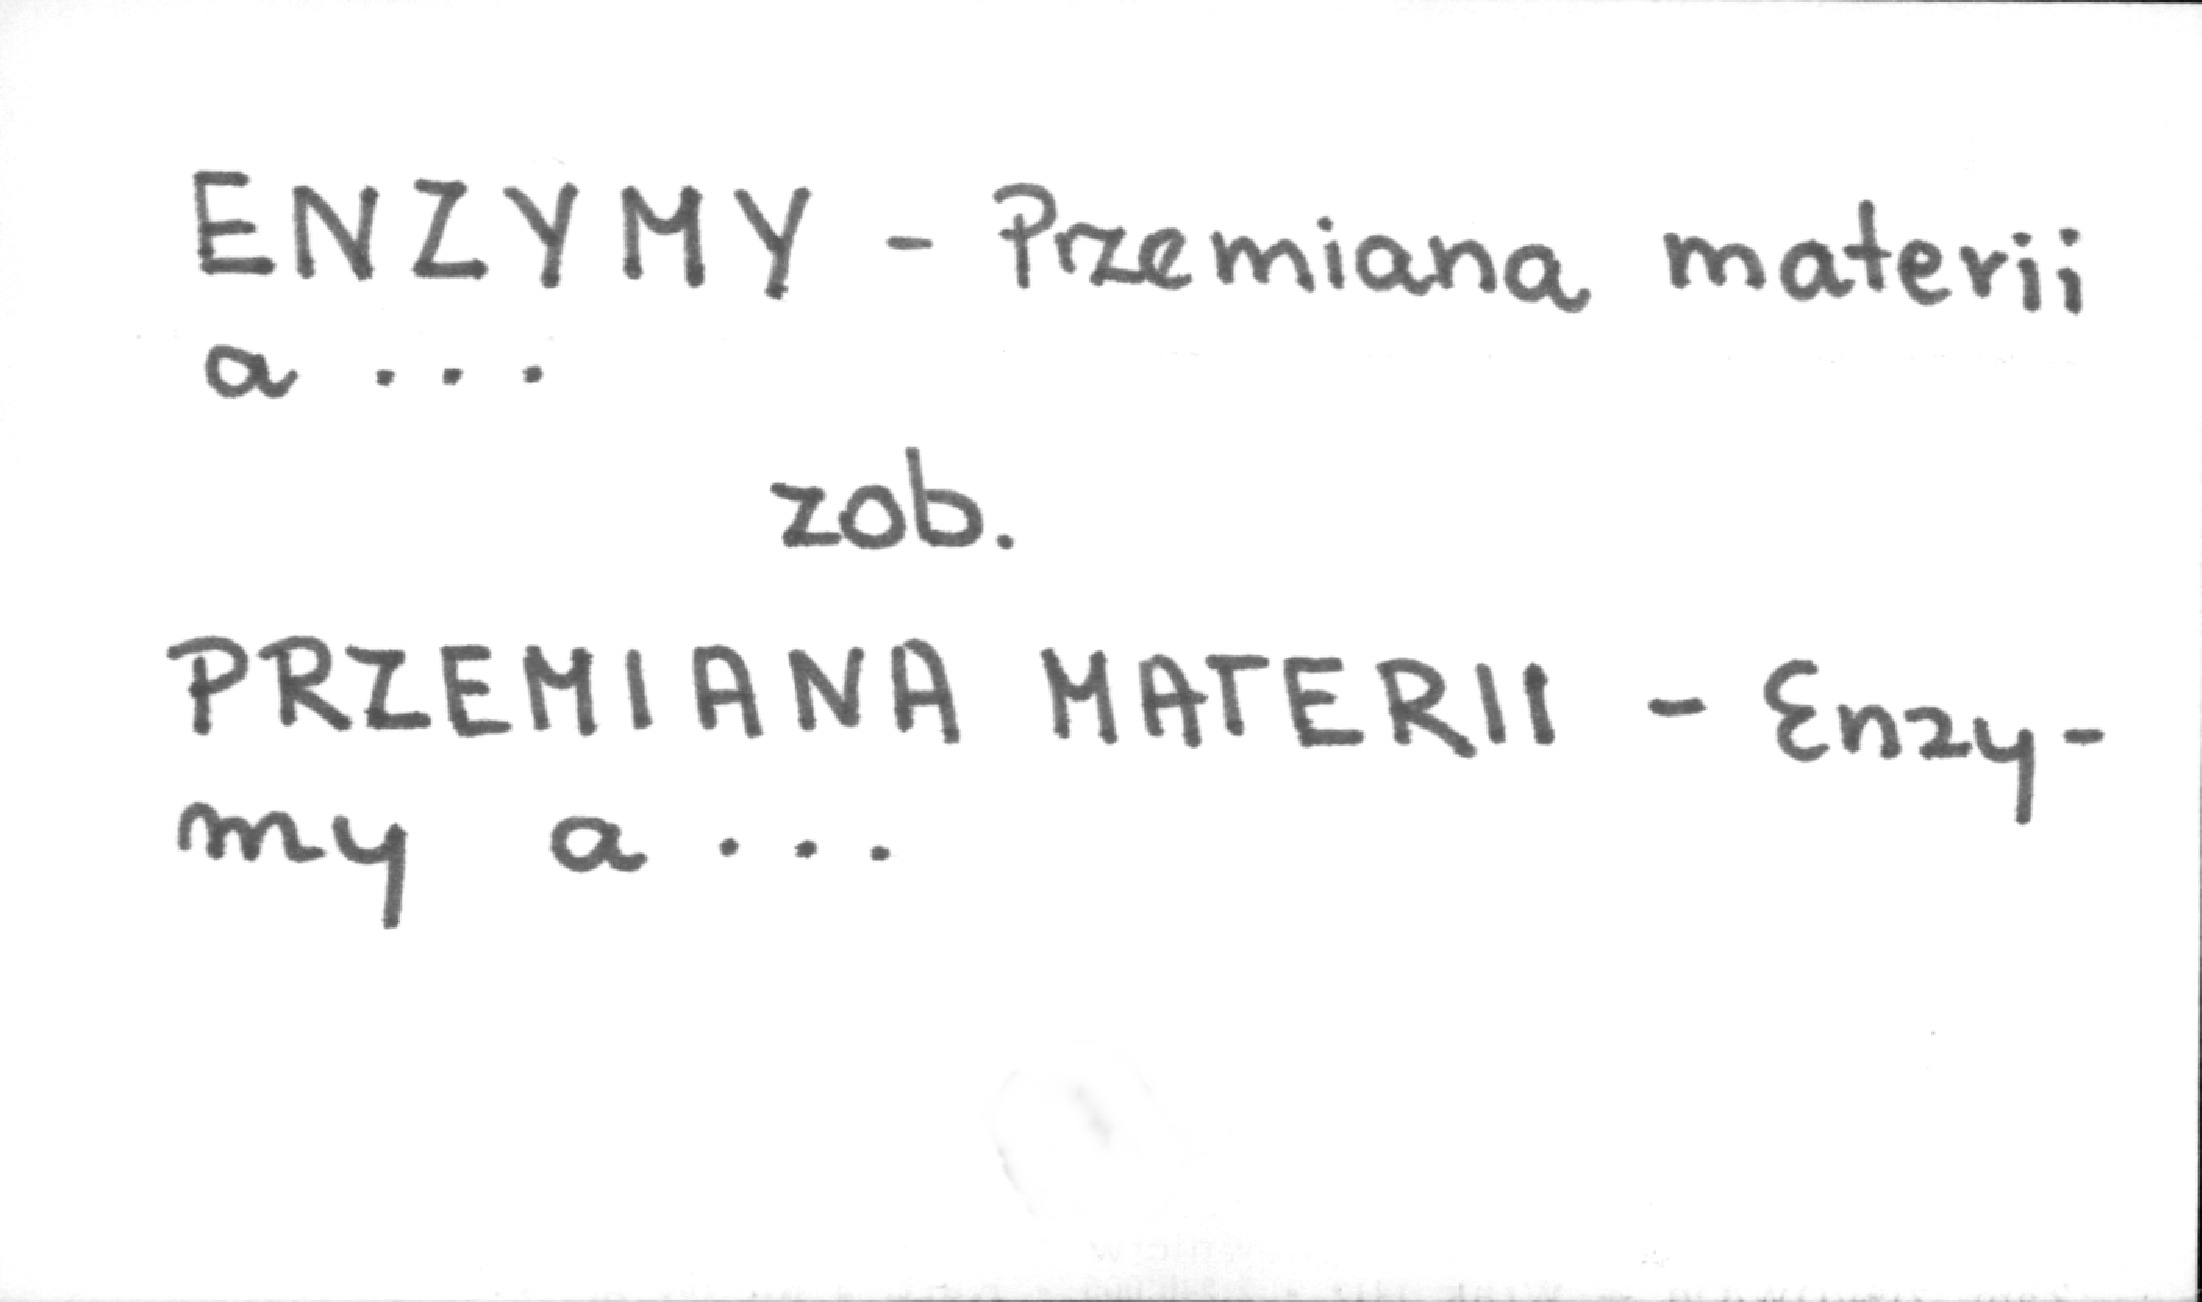 ENZYMY - Przemiana materii
a ...
zob.
PRZEMIANA MATERII - Enzy-
my a ...